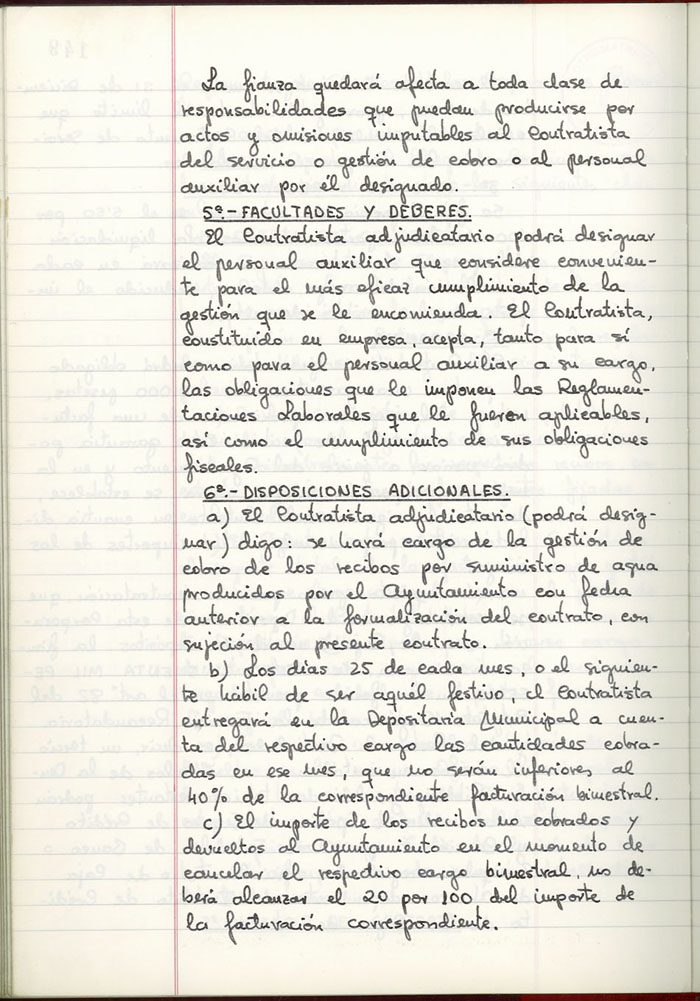 La fianza quedará afecta a toda clase de
responsabilidades que puedan producirse por
actos y omisiones imputables al Contratista
del servicio o gestión de cobro o al personal
auxiliar por él designado.
5ª.- FACULTADES Y DEBERES.
El Contratista adjudicatario podrá designar
el personal auxiliar que considere convenien-
te para el más eficaz cumplimiento de la
gestión que se le encomienda. El Contratista,
constituido en empresa, acepta, tanto para sí
como para el personal auxiliar a su cargo,
las obligaciones que le imponen las Reglamen-
taciones Laborales que le fueren aplicables,
así como el cumplimiento de sus obligaciones
fiscales.
6ª.- DISPOSICIONES ADICIONALES.
a) El Contratista adjudicatario (podrá desig-
nar) digo: se hará cargo de la gestión de
cobro de los recibos por suministro de agua
producidos por el Ayuntamiento con fecha
anterior a la formalización del contrato, con
sujeción al presente contrato.
b) Los días 25 de cada mes, o el siguien-
te hábil de ser aquél festivo, el Contratista
entregará en la Depositaría Municipal a cuen-
ta del respectivo cargo las cantidades cobra-
das en ese mes, que no serán inferiores al
40% de la correspondiente facturación bimestral.
c) El importe de los recibos no cobrados y
devueltos al Ayuntamiento en el momento de
cancelar el respectivo cargo bimestral, no de-
berá alcanzar el 20 por 100 del importe de
la facturación correspondiente.